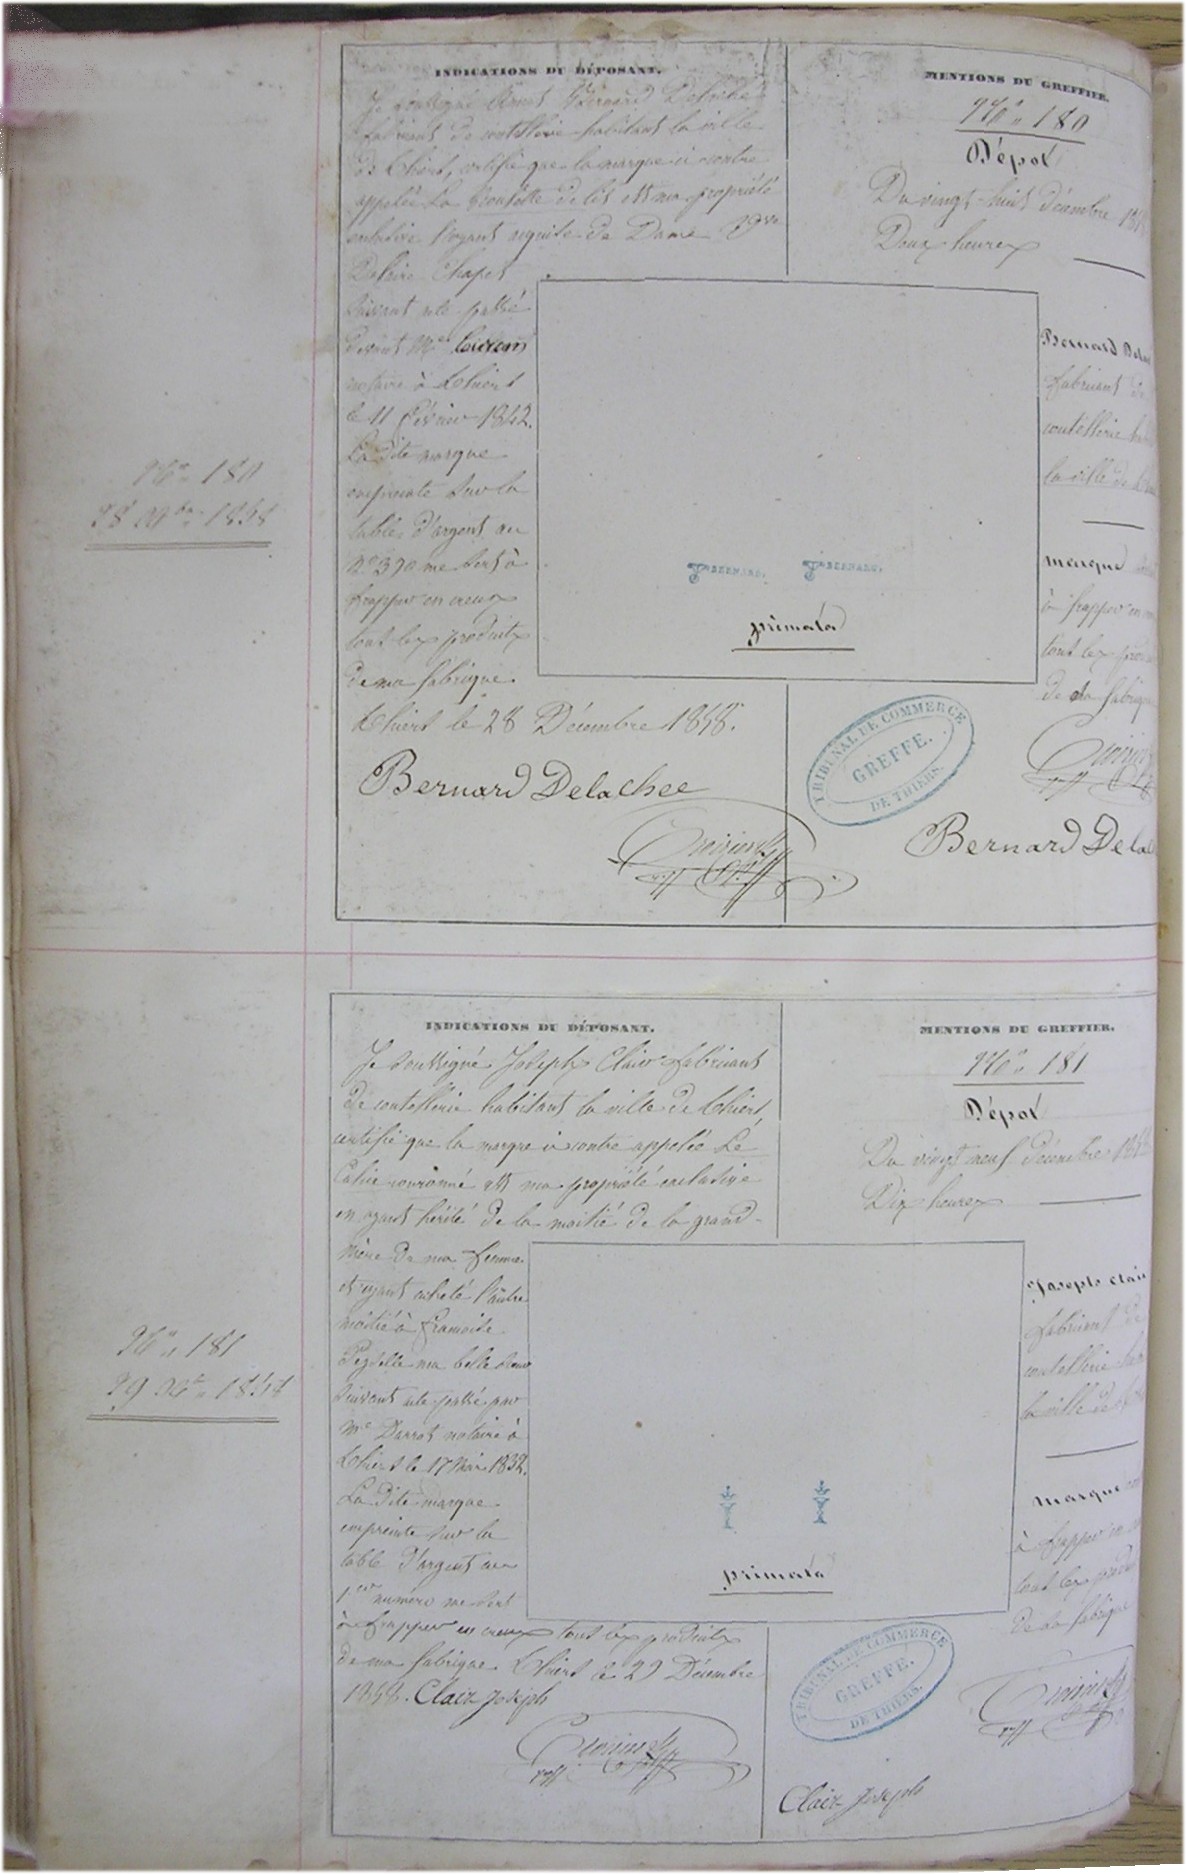 INDICATIONS DU DÉPOSANT.
Je soussigné Bernard Delachée
fabricant de coutellerie habitant la ville
de Thiers, certifie que la marque ci contre
appelée La de lis est ma propriété
exclusive l'ayant acquise de Dame
Chapet
suivant acte passé
devant Me
notaire à Thiers
le 11 février 1842.
La dite marque
empreinte sur la
table d'argent au
No 390 me sert à
frapper en creux
tout les produits
de ma fabrique.
Thiers le 28 Décembre 1858.
Bernard Delachee
MENTIONS DU GREFFIER.
No 180
Dépot
Du vingt-huit décembre
Deux heures
Bernard
fabricant de
coutellerie
la ville de
marque
à frapper en
tout les
de sa fabrique
BERNARD. BERNARD.
primata
TRIBUNAL DE COMMERCE
GREFFE.
DE THIERS.
Bernard Dela
No 180
28 Xbre 1858
INDICATIONS DU DÉPOSANT.
Je soussigné Joseph Clair fabricant
de coutellerie habitant la ville de Thiers,
certifie que la marque ci contre appelée Le
Calice couronné est ma propriété exclusive
en ayant hérité de la moitié de la grand-
mère de ma femme
et ayant acheté l'autre
moitié à francoise
ma belle soeur
suivant acte passé par
Me Darrot notaire à
Thiers le 17 Mai 1832.
La dite marque
empreinte sur la
table d'argent au
1er numéro me sert
à frapper en creux tout les produits
de ma fabrique Thiers le 29 Décembre
1858. Clair Joseph
MENTIONS DU GREFFIER.
No 181
Dépot
Du vingt neuf décembre
Dix heures
Joseph Clair
fabricant de
coutellerie
la ville de
marque
à frapper en
tout les
de sa fabrique
primata
TRIBUNAL DE COMMERCE
GREFFE.
DE THIERS.
Clair Joseph
No 181
29 Xbre 1858